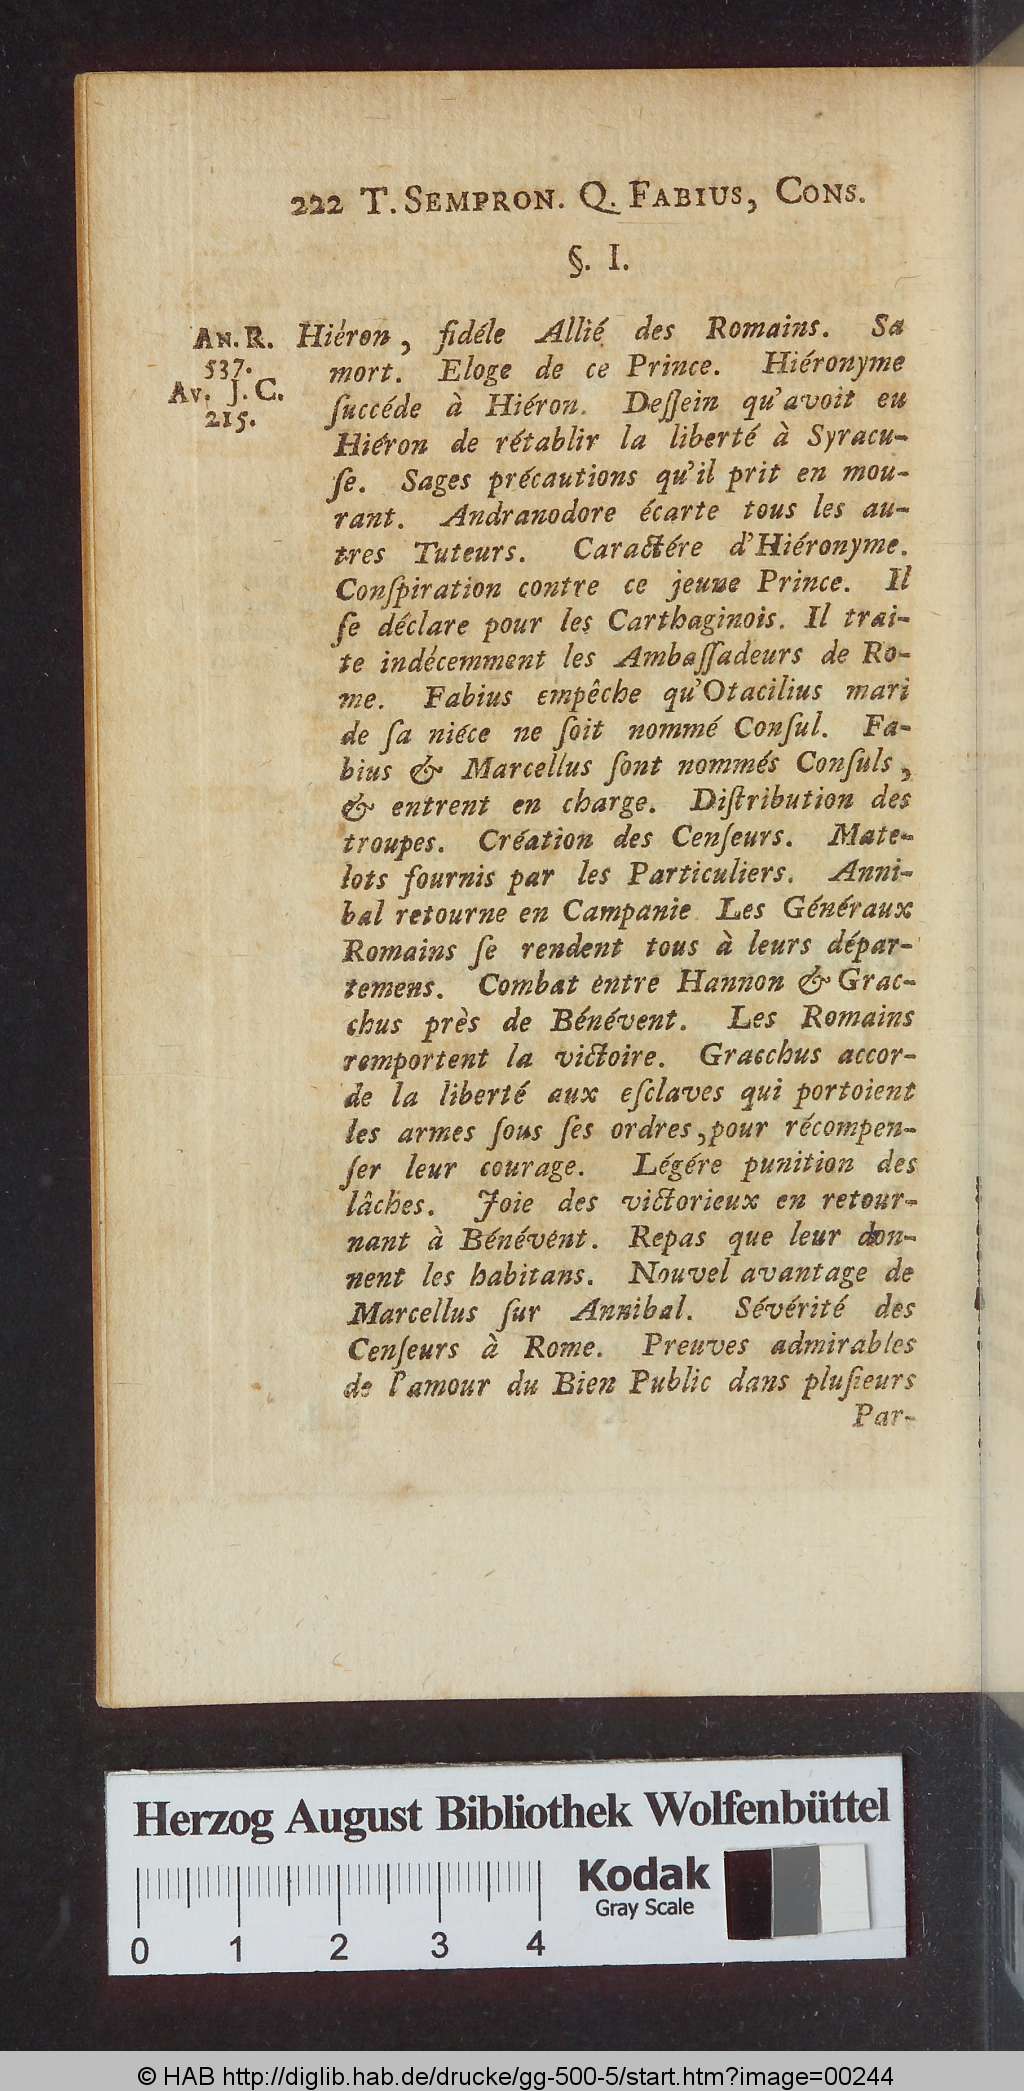 222 T. SEMPRON. Q. FABIUS, CONS.
§. I.
AN. R.
537.
Av. J. C.
215.
Hiéron, fidéle Allié des Romains. Sa
mort. Eloge de ce Prince. Hiéronyme
ſuccéde à Hiéron. Deſſein qu'avoit eu
Hiéron de rétablir la liberté à Syracu-
ſe. Sages précautions qu'il prit en mou-
rant. Andranodore écarte tous les au-
tres Tuteurs. Caractére d'Hiéronyme.
Conſpiration contre ce jeune Prince. Il
ſe déclare pour les Carthaginois. Il trai-
te indécemment les Ambaſſadeurs de Ro-
me. Fabius empêche qu'Otacilius mari
de ſa niéce ne ſoit nommé Conſul. Fa-
bius & Marcellus ſont nommés Conſuls,
& entrent en charge. Diſtribution des
troupes. Création des Cenſeurs. Mate-
lots fournis par les Particuliers. Anni-
bal retourne en Campanie Les Généraux
Romains ſe rendent tous à leurs dépar-
temens. Combat entre Hannon & Grac-
chus près de Bénévent. Les Romains
remportent la victoire. Gracchus accor-
de la liberté aux eſclaves qui portoient
les armes ſous ſes ordres, pour récompen-
ſer leur courage. Légére punition des
lâches. Joie des victorieux en retour-
nant à Bénévent. Repas que leur don-
nent les habitans. Nouvel avantage de
Marcellus ſur Annibal. Sévérité des
Cenſeurs à Rome. Preuves admirables
de l'amour du Bien Public dans pluſieurs
Par-
Herzog August Bibliothek Wolfenbüttel
Kodak
Gray Scale
0 1 2 3 4
© HAB http://diglib.hab.de/drucke/gg-500-5/start.htm?image=00244